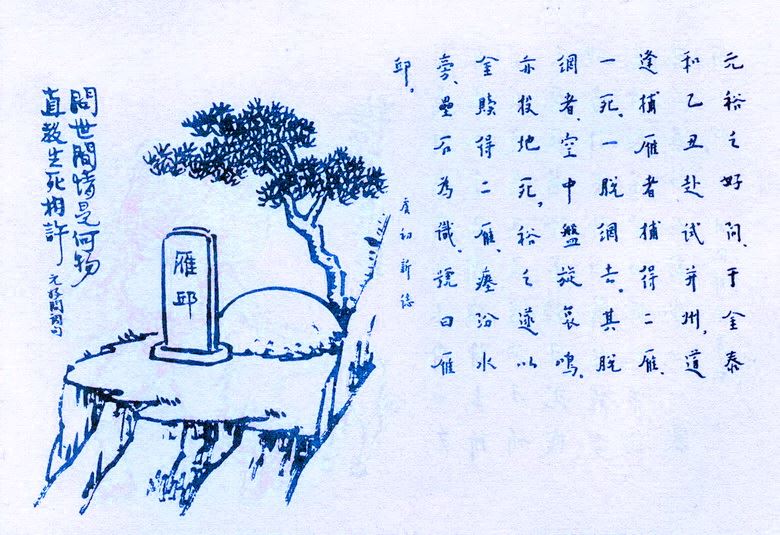 元裕之好问，于金泰
和乙丑赴试并州，道
逢捕雁者捕得二雁，
一死，一脱網去。其脱
網者，空中盤旋哀鳴，
亦投地死，裕之遂以
金贖得二雁，瘞汾水
旁，壘石為識，號曰雁
邱。
虞初新志
雁邱
問世間情是何物
直教生死相許
元好問詞句